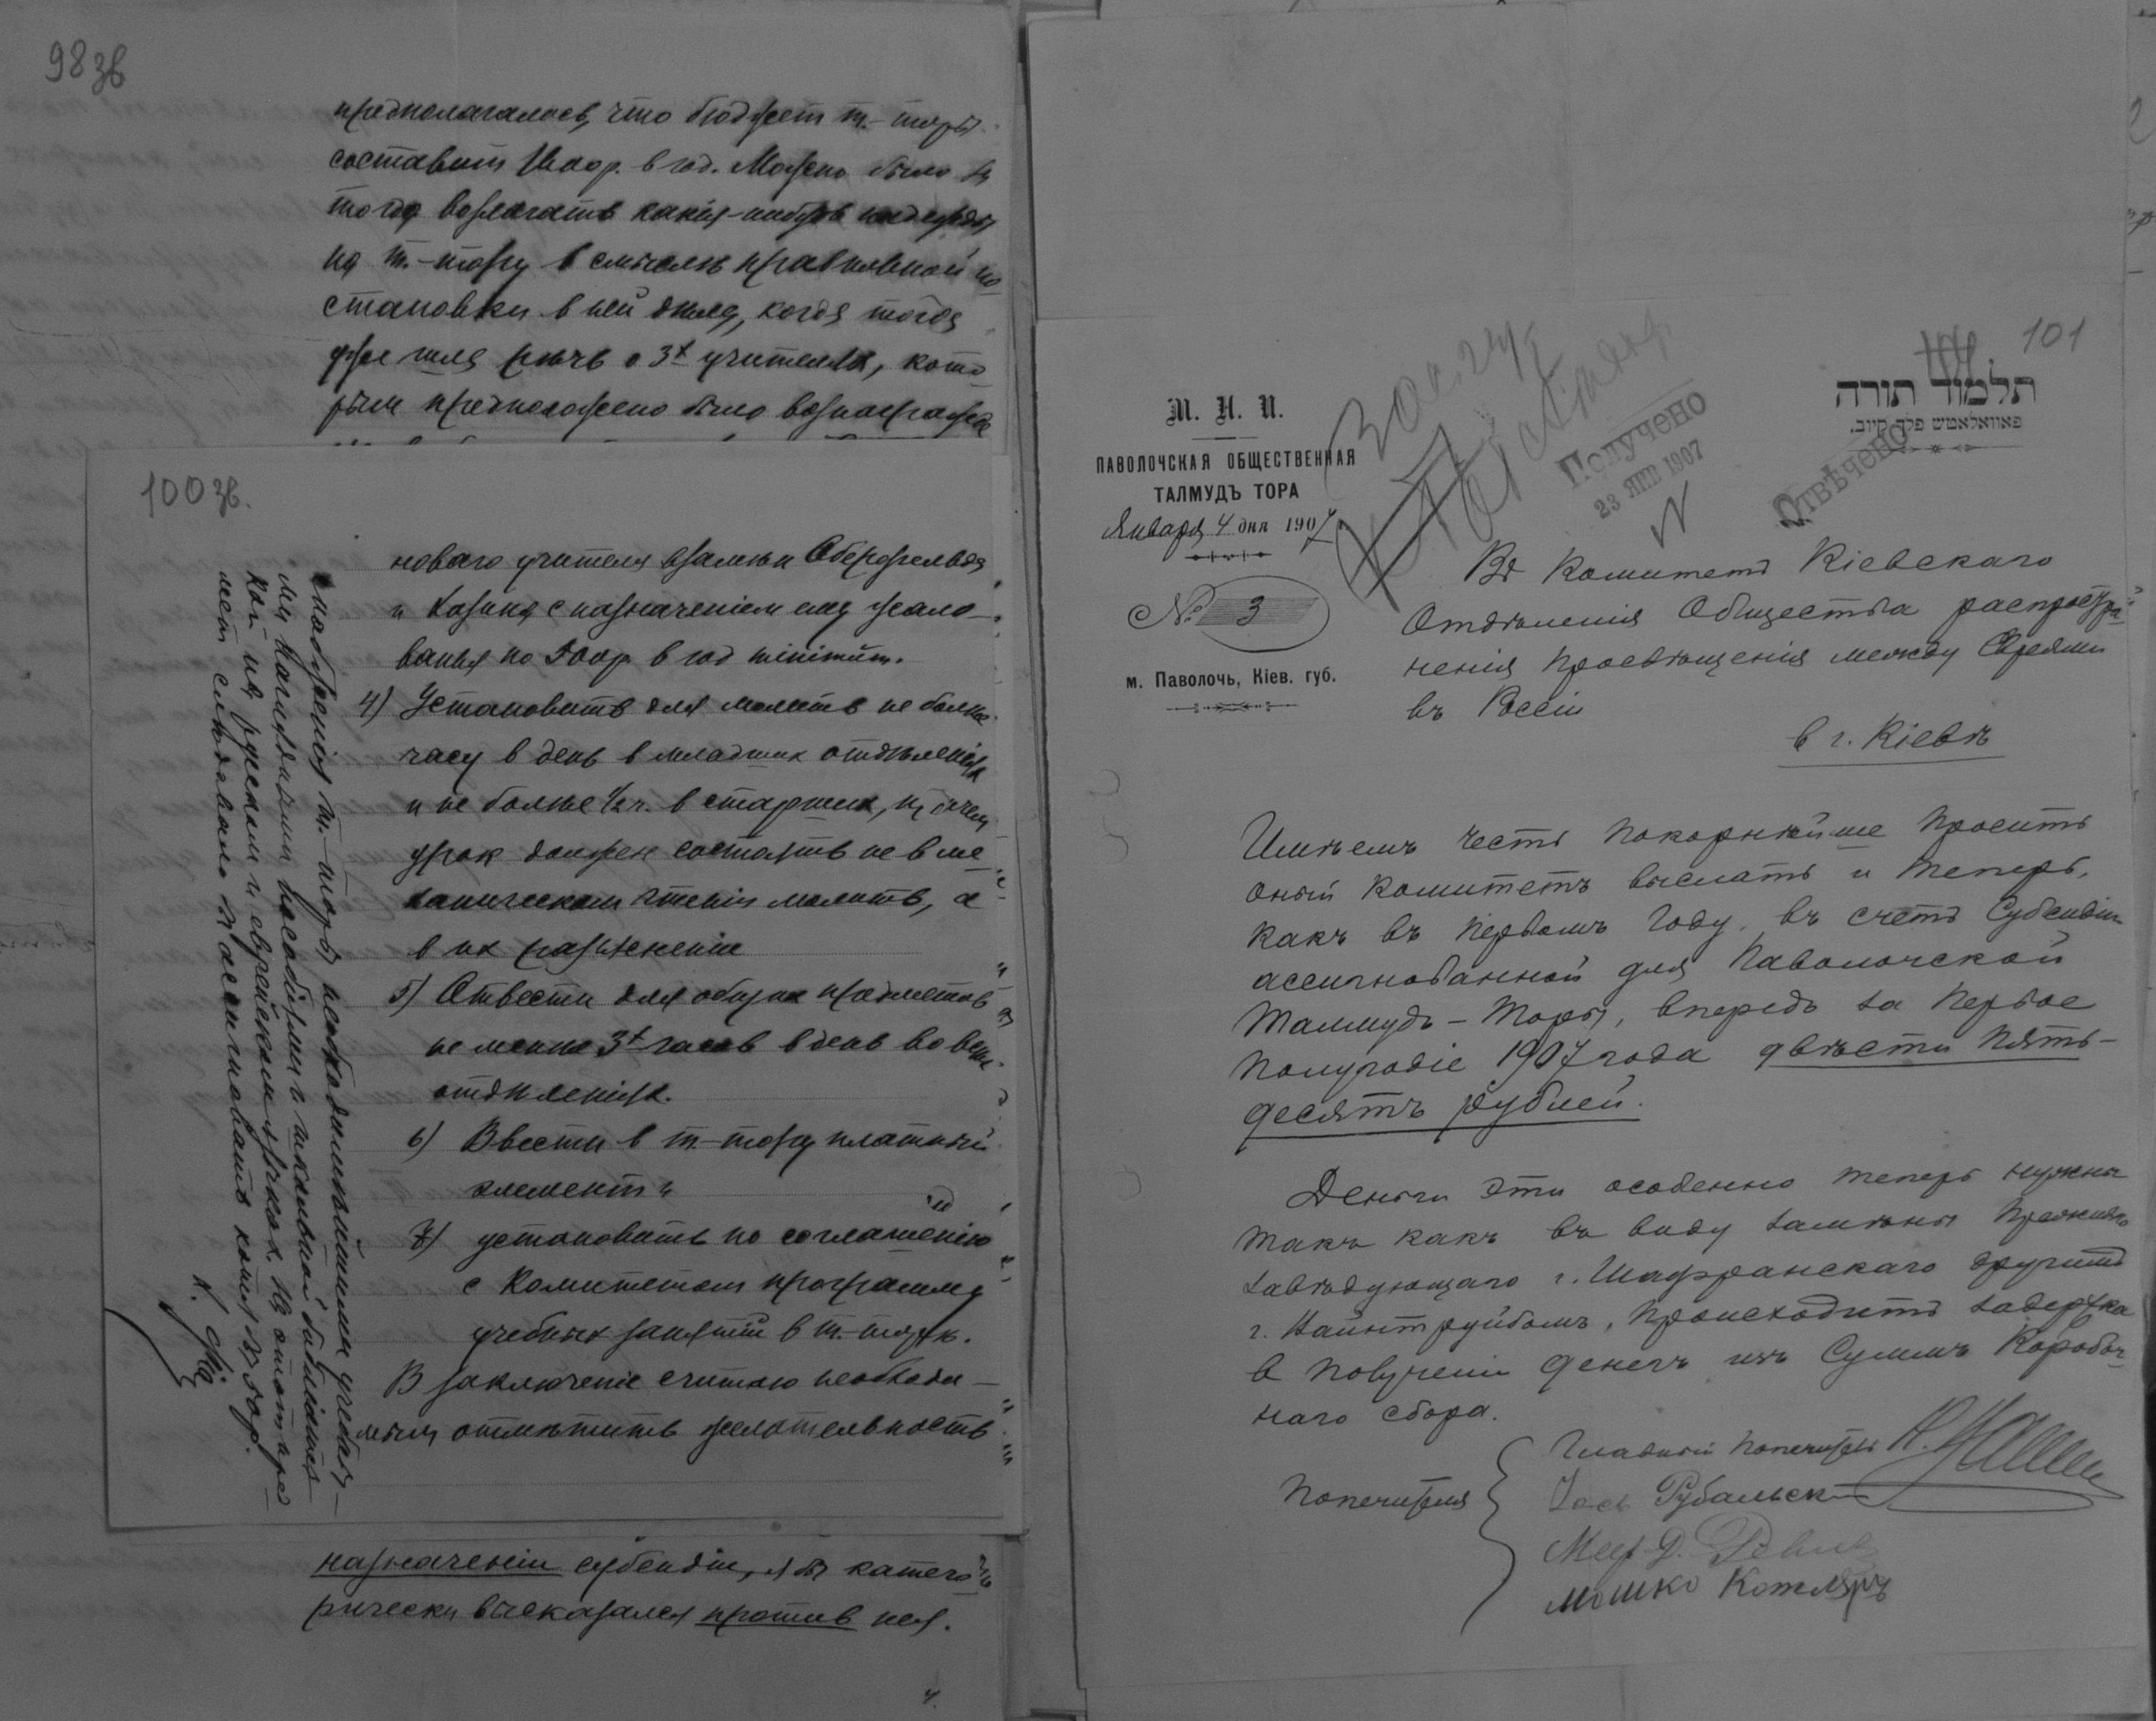 98 зв
предполагалось, что бюджет т.-торы
составит р. в год. Можно было ли
тогда возлагать какія-нибудь надежды
на т.-тору в смысле правильной по
становки в ней дѣла, когда тогда
уже шла рѣчь о 3х учителях, кото
рым предположено было вознагражде
100 зв.
новаго учителя взамѣн
и Хазина с назначеніем ему жало
ванья по 500 р в год minimum.
4) Установить для молитв не болѣе
часу в день в младших отдѣленіях
и не болѣе ½ ч. в старших, причем
урок должен состоять не в ме
ханическом чтеніи молитв, а
в их разъясненіи
5) Отвести для общих предметов
не менѣе 3х часов в день во всѣх
отдѣленіях.
6) Ввести в т.-тору платный
элемент и
7) установить по соглашенію
с Комитетом программу
учебных занятій в т.-торѣ.
В заключеніе считаю необходи
мым отмѣтить желательность
снабженія т.-торы необходимѣйшими учебны
ми наглядными пособіями и школьной библіотеч
кой на русском и еврейском языках. На этот пред
мет слѣдовало б ассигновать хотя б 50 р.
назначеніи субсидіи, я бы катего
рически высказался против нея.
4.
101
תלמוד תורה
פאוואלאטש פלך קיוב.
М. Н. П.
ПАВОЛОЧСКАЯ ОБЩЕСТВЕННАЯ
ТАЛМУДЪ ТОРА
Января 4 дня 1907
№ 3
м. Паволочь, Кіев. губ.
Получено
23 ЯНВ 1907
Отвѣчено
Въ Комитетъ Кіевскаго
Отдѣленія Общества распостра
ненія Просвѣщенія между Евреями
въ Россіи
в г. Кіевѣ
Имѣемъ честь покорнѣйше просить
оный Комитетъ выслать и теперь,
какъ въ первомъ году, въ счетъ Субсидіи
ассигнованной для Паволочской
Талмудъ-Торы, впередъ за первое
полугодіе 1907 года двѣсти пять-
десятъ рублей.
Деньги эти особенно теперь нужны
такъ какъ въ виду замѣны прежняго
завѣдующаго г. Шафранскаго другимъ
г. Вайнтруйбомъ, происходитъ задержка
в получении денегъ изъ Суммъ Коробоч
наго сбора.
Попечителя
Главный попечитель
Рубальск
Меер Д.
Мошко Котляръ